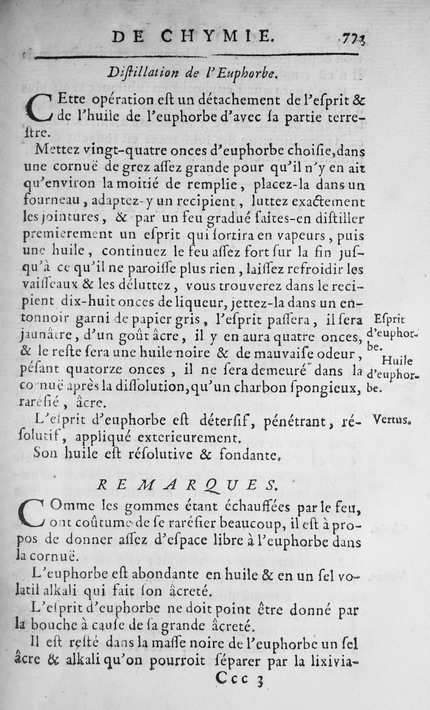 DE CHYMIE. 773
Diſtillation de l'Euphorbe.
CEtte opération eſt un détachement de l'eſprit &
de l'huile de l'euphorbe d'avec ſa partie terre-
ſtre.
Mettez vingt-quatre onces d'euphorbe choiſie, dans
une cornuë de grez aſſez grande pour qu'il n'y en ait
qu'environ la moitié de remplie, placez-la dans un
fourneau, adaptez-y un recipient, luttez exactement
les jointures, & par un feu gradué faites-en diſtiller
premierement un eſprit qui ſortira en vapeurs, puis
une huile, continuez le feu aſſez fort ſur la fin juſ-
qu'à ce qu'il ne paroiſſe plus rien, laiſſez refroidir les
vaiſſeaux & les déluttez, vous trouverez dans le reci-
pient dix-huit onces de liqueur, jettez-la dans un en-
tonnoir garni de papier gris, l'eſprit paſſera, il ſera
jaunâcre, d'un goût âcre, il y en aura quatre onces,
& le reſte ſera une huile noire & de mauvaiſe odeur,
péſant quatorze onces, il ne ſera demeuré dans la
cornuë après la diſſolution, qu'un charbon ſpongieux,
raréfié, âcre.
Eſprit
d'euphor-
be.
Huile
d'euphor-
be.
L'eſprit d'euphorbe eſt déterſif, pénétrant, ré-
ſolutif, appliqué exterieurement.
Vertus.
Son huile eſt réſolutive & fondante.
REMARQUES.
COmme les gommes étant échauffées par le feu,
ont coûtume de ſe raréfier beaucoup, il eſt à pro-
pos de donner aſſez d'eſpace libre à l'euphorbe dans
la cornuë.
L'euphorbe eſt abondante en huile & en un ſel vo-
latil alkali qui fait ſon âcreté.
L'eſprit d'euphorbe ne doit point être donné par
la bouche à cauſe de ſa grande âcreté.
Il eſt reſté dans la maſſe noire de l'euphorbe un ſel
âcre & alkali qu'on pourroit ſéparer par la lixivia-
Ccc 3